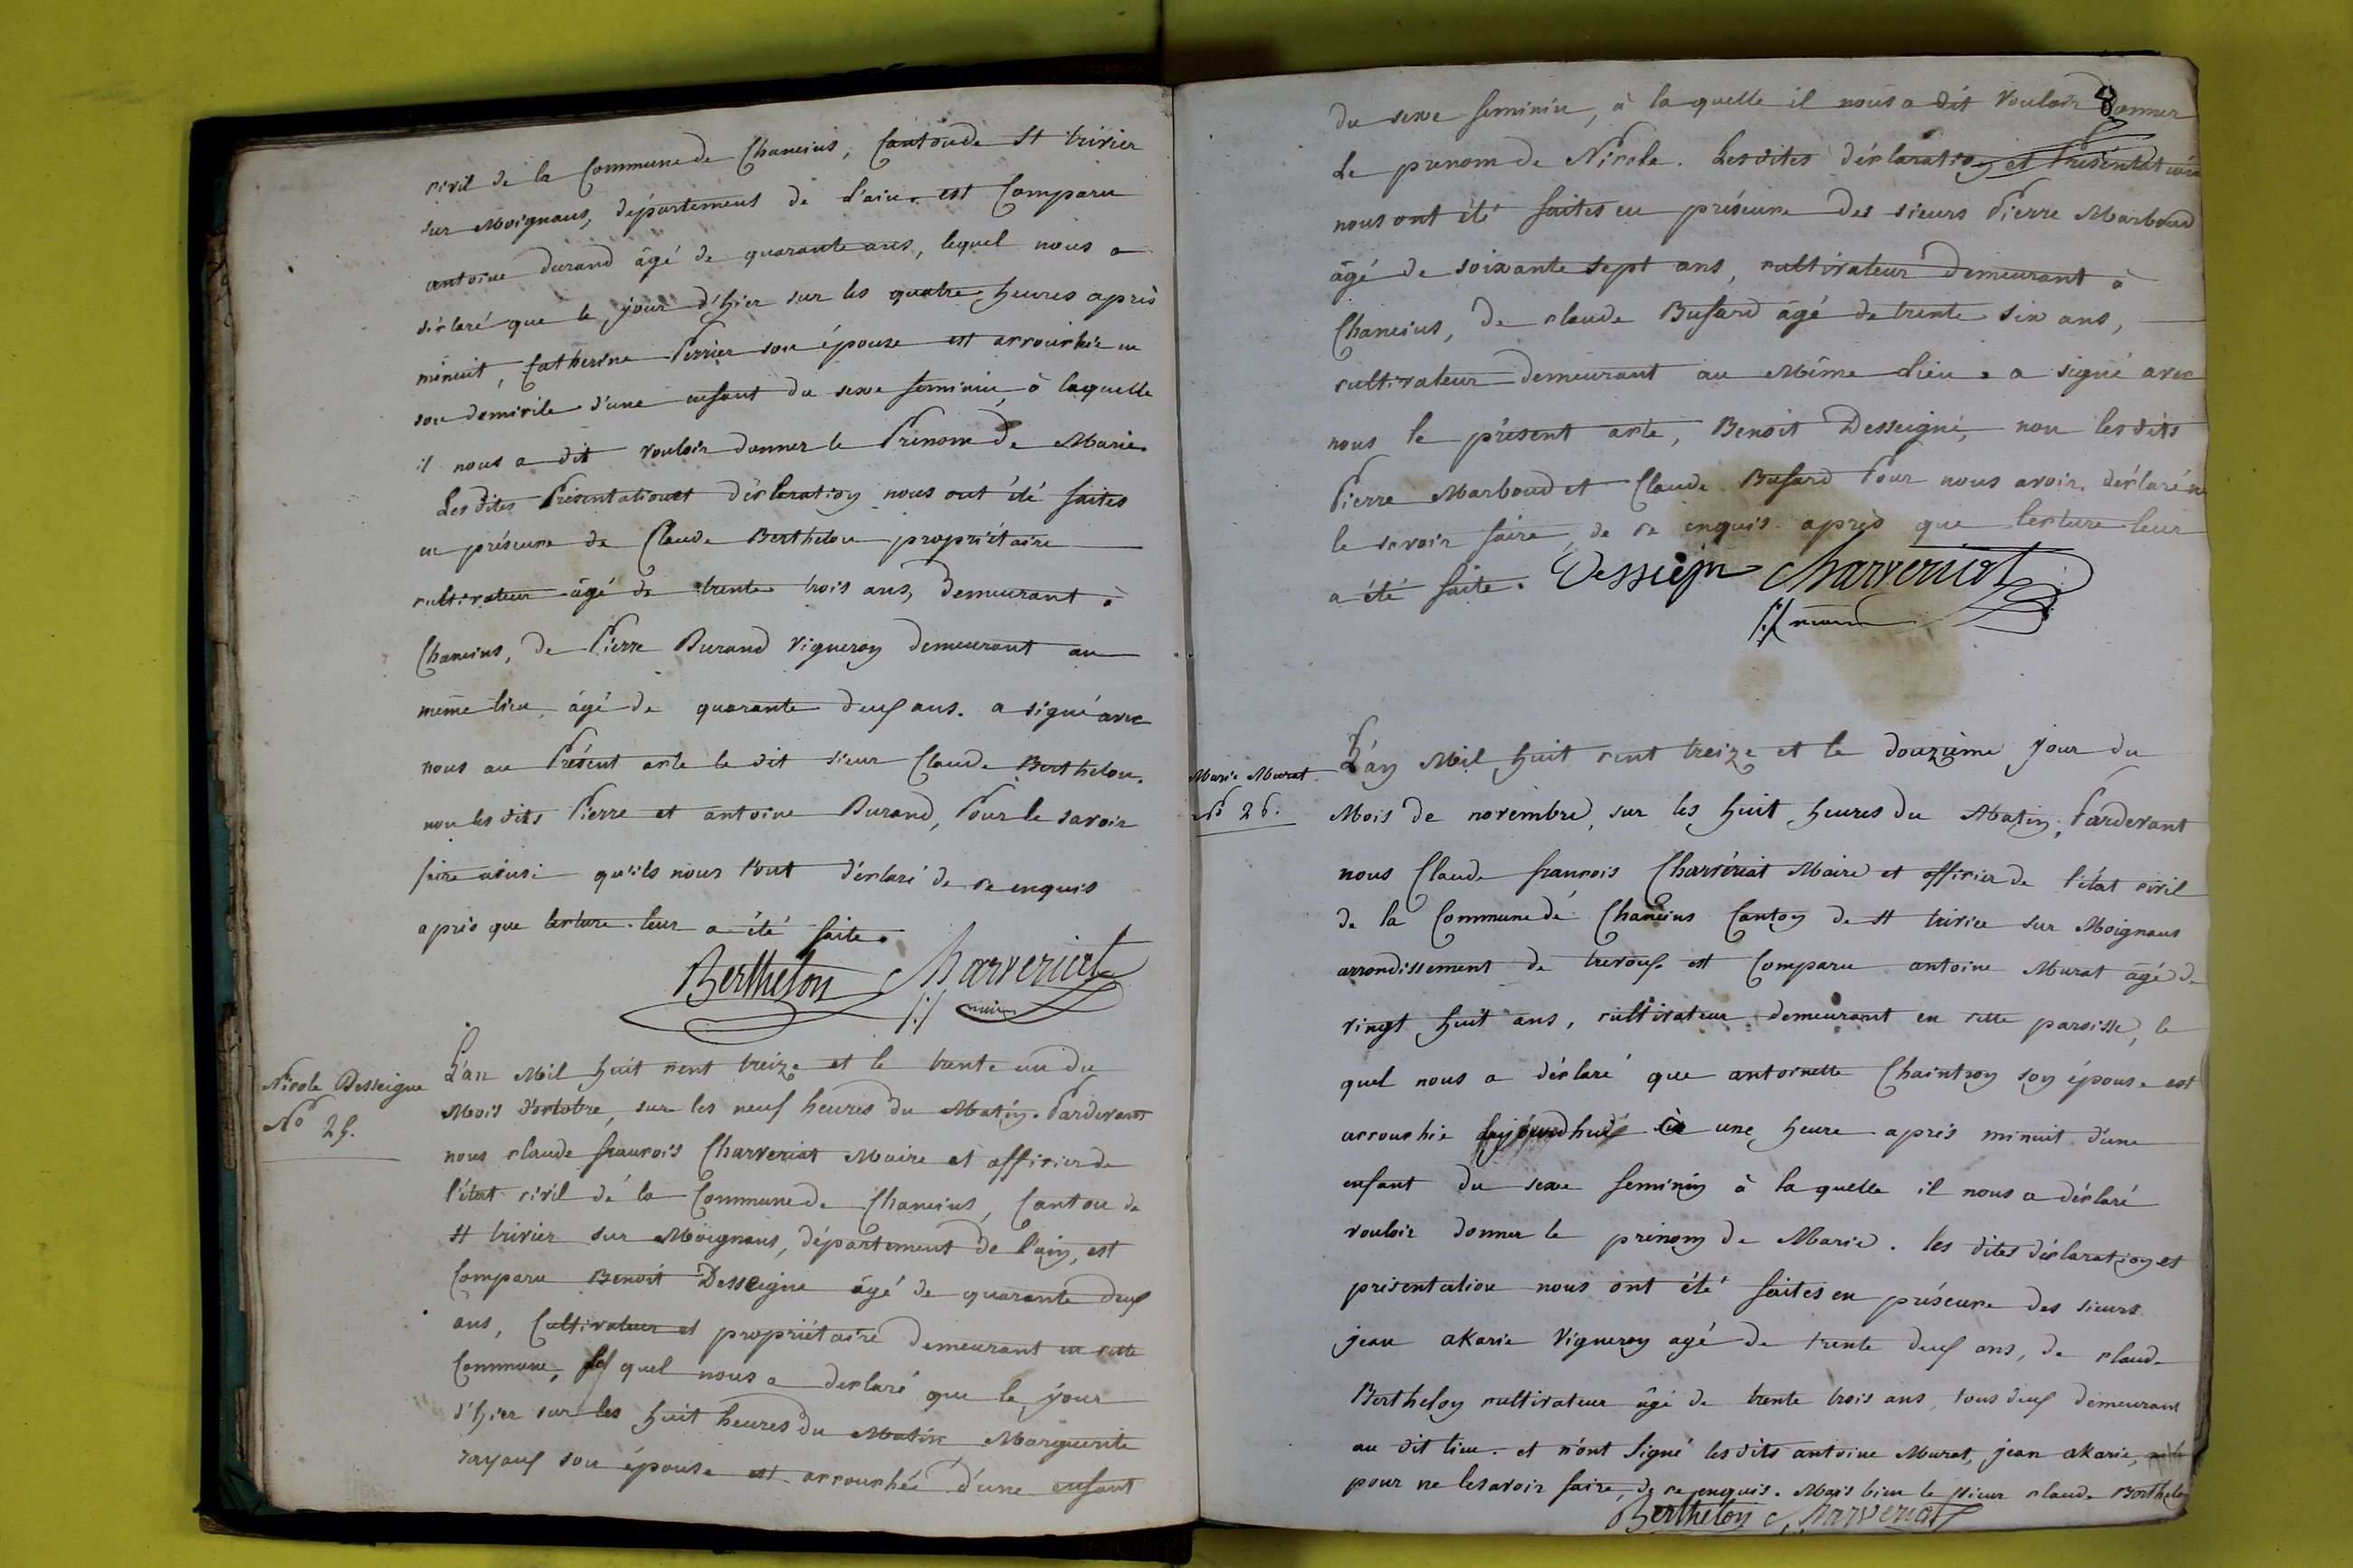 civil de la Commune de Chaneins, Canton de St trivier
sur Moignans, département de L'ain. est Comparu
antoine durand âgé de quarante ans, lequel nous a
déclaré que le jour d'hier sur les quatre heures après
minuit, Catherine Perrier son épouse est accouchée en
son domicile d'une enfant du sexe feminin, à laquelle
il nous a dit vouloir donner le Prénom de Marie.
Les dites Présentation et déclaration nous ont été faites
en présence de Claude Berthelon propriétaire
cultivateur âgé de trente trois ans, demeurant à
Chaneins, de Pierre Durand vigneron demeurant au
même lieu, âgé de quarante deux ans. a signé avec
nous au Présent acte le dit sieur Claude Berthelon.
non les dits Pierre et antoine Durand, Pour le savoir
faire ainsi qu'ils nous l'ont déclaré de ce enquis
après que lecture leur a été faite.
Berthelon Charveriat
maire
Nicole Desseigne
No 25.
L'an Mil huit cent treize et le trente un du
Mois d'octobre, sur les neuf heures du Matin. Pardevant
nous claude francois Charveriat Maire et officier de
l'état civil de la Commune de Chaneins, Canton de
St trivier sur Moignans, département de l'ain, est
Comparu Benoit Desseigne âgé de quarante deux
ans, Cultivateur et propriétaire demeurant en cette
Commune, le quel nous a declaré que le jour
d'hier sur les huit heures du Matin Marguerite
son épouse est accouchée d'une enfant
8
du sexe feminin, à la quelle il nous a dit vouloir donner
Le prenom de Nicole. Les dites déclaration et Présentation
nous ont été faites en présence des sieurs Pierre Marboud
âgé de soixante sept ans, cultivateur demeurant à
Chaneins, de claude Busard âgé de trente six ans,
cultivateur demeurant au Même Lieu. a signé avec
nous le présent acte, Benoit Desseigne, non les dits
Pierre Marboud et Claude Busard Pour nous avoir déclaré ne
le savoir faire, de ce enquis après que lecture leur
a été faite. Dessiejn Charveriat
maire
Marie Murat.
No 26.
L'an Mil huit cent treize et le douzième jour du
Mois de novembre, sur les huit heures du Matin, Pardevant
nous Claude francois Charvériat Maire et officier de l'état civil
de la Commune de Chaneins Canton de St trivier sur Moignans
arrondissement de trevoux est Comparu antoine Murat âgé de
vingt huit ans, cultivateur demeurant en cette paroisse, le
quel nous a déclaré que antoinette Chaintron son épouse est
accouchée aujourdhui à une heure après minuit d'une
enfant du sexe feminin à la quelle il nous a déclaré
vouloir donner le prénom de Marie. les dites déclaration et
présentation nous ont été faites en présence des sieurs
jean akarie vigneron agé de trente deux ans, de claude
Berthelon cultivateur âgé de trente trois ans, tous deux demeurant
au dit lieu. et n'ont signé les dits antoine Murat, jean akarie,
pour ne le savoir faire, de ce enquis. Mais bien le sieur claude Berthelon
Berthelon Charveriat